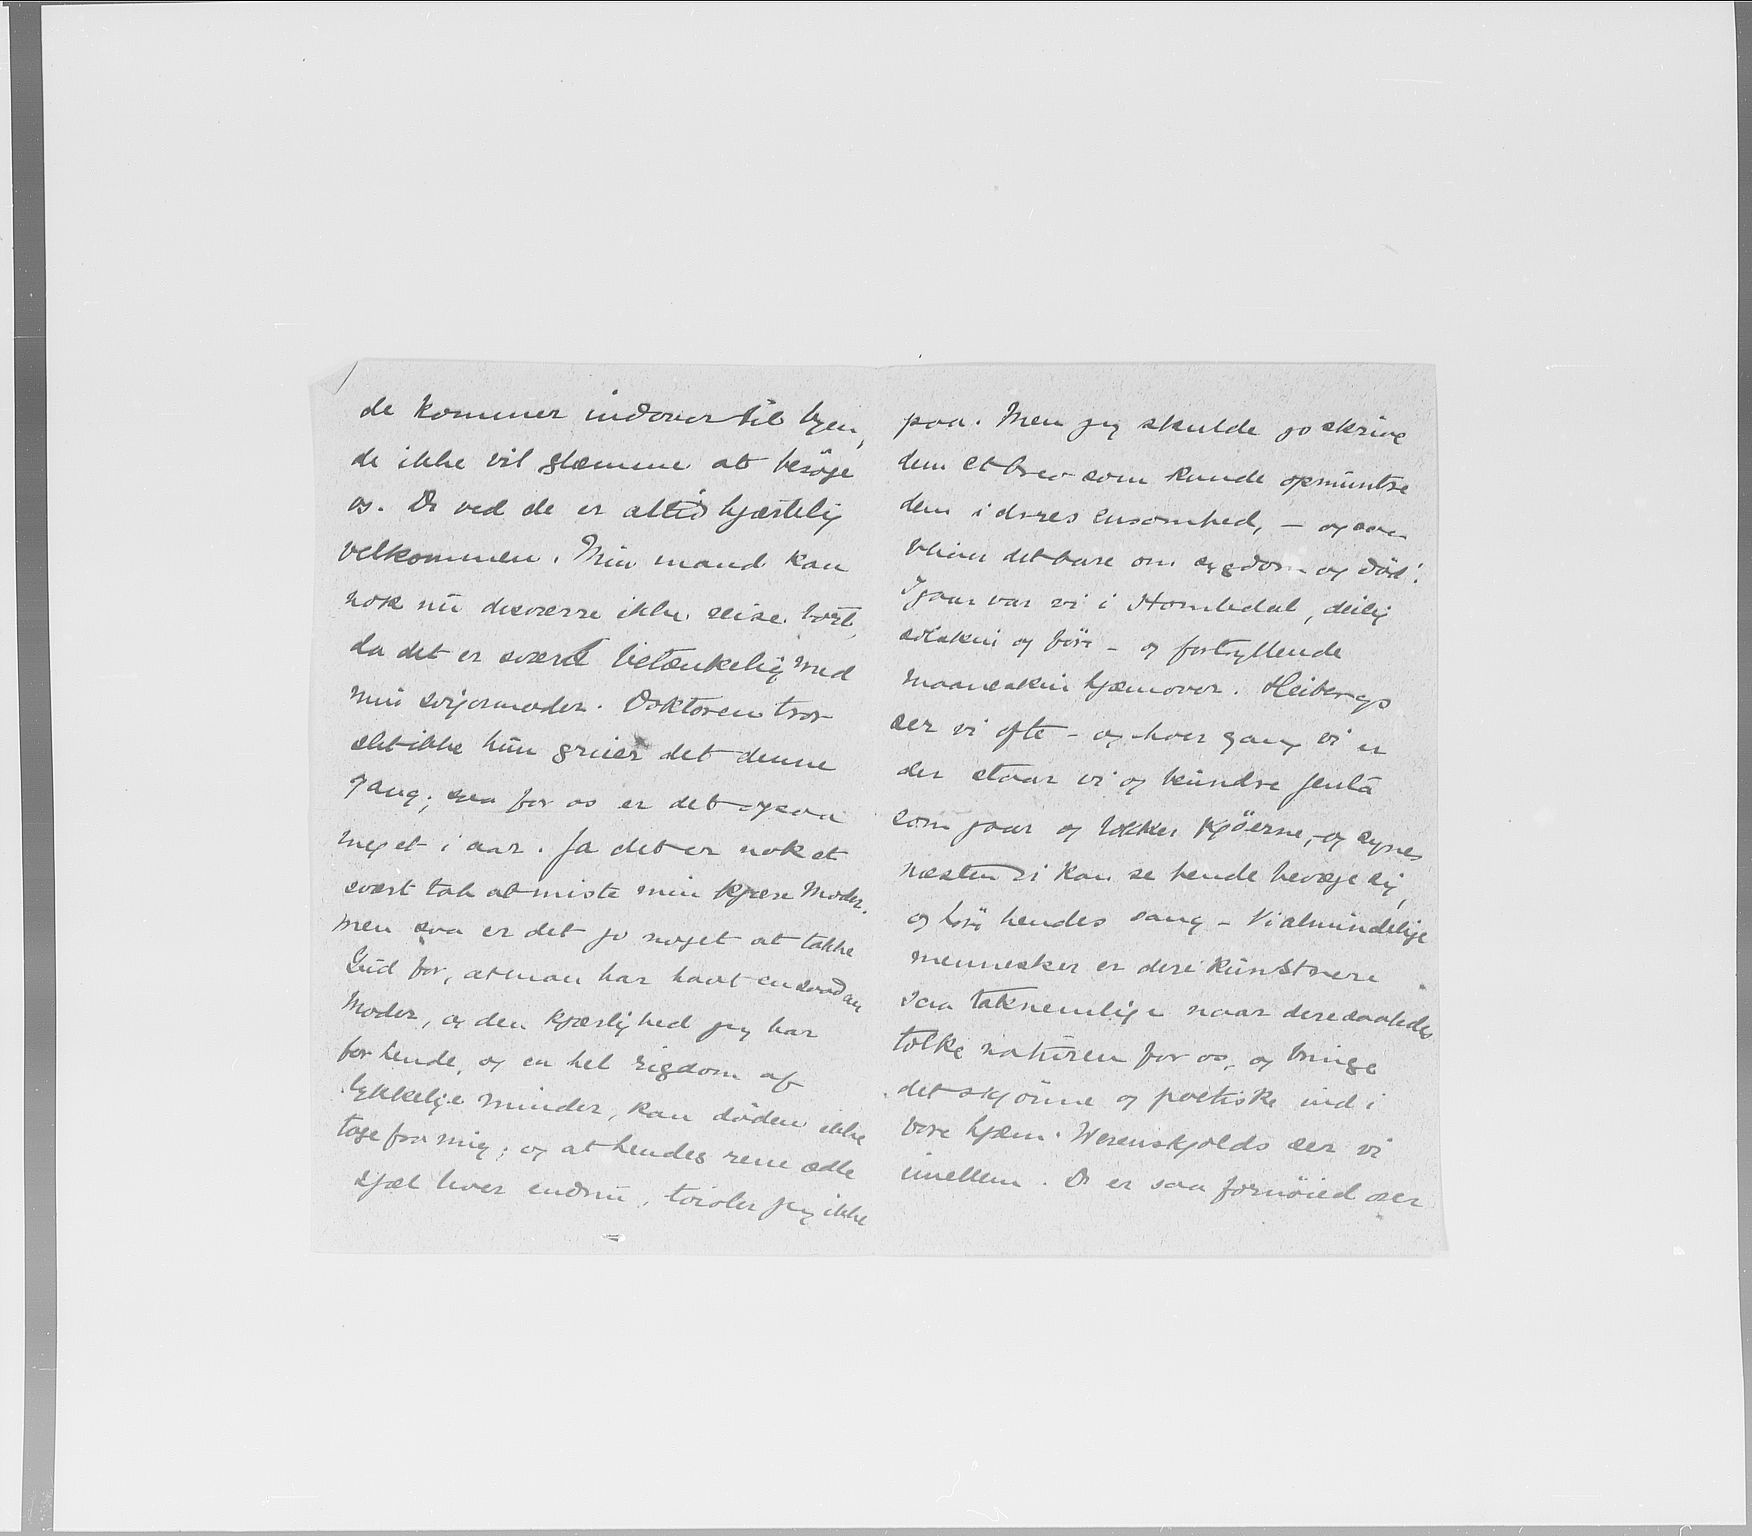 de kommer indover til byen,
de ikke vil glemme at besøge
os. De ved de er altid hjærtelig
velkommen. Min mand kan
nok nu desværre ikke reise bort,
da det er svært betænkelig med
min svigermoder. Doktoren tror
slet ikke hun greier det denne
gang; saa for os er det ogsaa
meget i aar. Ja det er nok et
svært tab at miste min kjære Moder.
men saa er det jo noget at takke
Gud for, at man har havt en saadan
Moder, og den kjærlighed jeg har
for hende, og en hel rigdom af
lykkelige minder, kan døden ikke
tage fra mig; og at hendes rene ædle
sjæl lever endnu, tvivler jeg ikke
paa. Men jeg skulde jo skrive
dem et brev som kunde opmuntre
dem i deres ensomhed, – og saa
bliver det bare om sygdom og død!
Igaar var vi i Hornbdal, deilig
solskin og føre – og fortryllende
maaneskin hjæmover. Heibergs
ser vi ofte – og hver gang vi er
der staar vi og beundre jenta
som gaar og lokker kjøerne, og synes
næsten vi kan se hende bevæge sig,
og høre hendes sang – Vi almindelige
mennesker er dere kunstnere
saa taknemlige naar dere saaledes
tolke naturen for os, og bringe
det skjønne og poetiske ind i
vore hjem. Werenskjolds ser vi
imellem. De er saa fornøied over